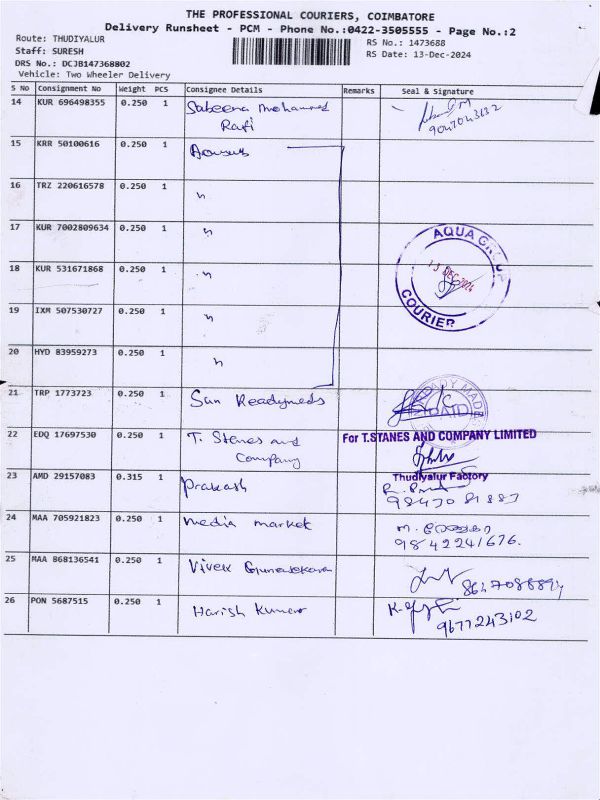 THE PROFESSIONAL COURIERS, COIMBATORE
Delivery Runsheet - PCM - Phone No.:0422-3505555 - Page No.:2
Route: THUDIYALUR
RS No.: 1473688
Staff: SURESH
RS Date: 13-Dec-2024
DRS No.: DCJB147368802
Vehicle: Two Wheeler Delivery
S No Consignment No Weight PCS Consignee Details Remarks Seal & Signature
14 KUR 696498355 0.250 1 Sabeena Mohammed
Rafi
9047043132
15 KRR 50100616 0.250 1
16 TRZ 220616578 0.250 1 "
17 KUR 7002809634 0.250 1 "
AQUA GROUP
13 DEC 2024
COURIER
18 KUR 531671868 0.250 1 "
19 IXM 507530727 0.250 1 "
20 HYD 83959273 0.250 1 "
21 TRP 1773723 0.250 1 Sun Readymeds
22 EDQ 17697530 0.250 1 T. Stanes and
Company
For T.STANES AND COMPANY LIMITED
Thudiyalur Factory
23 AMD 29157083 0.315 1 Prakash
24 MAA 705921823 0.250 1 media market
9842241676.
25 MAA 868136541 0.250 1 Vivek Gunasekaran
26 PON 5687515 0.250 1 Harish Kumar
9677243102